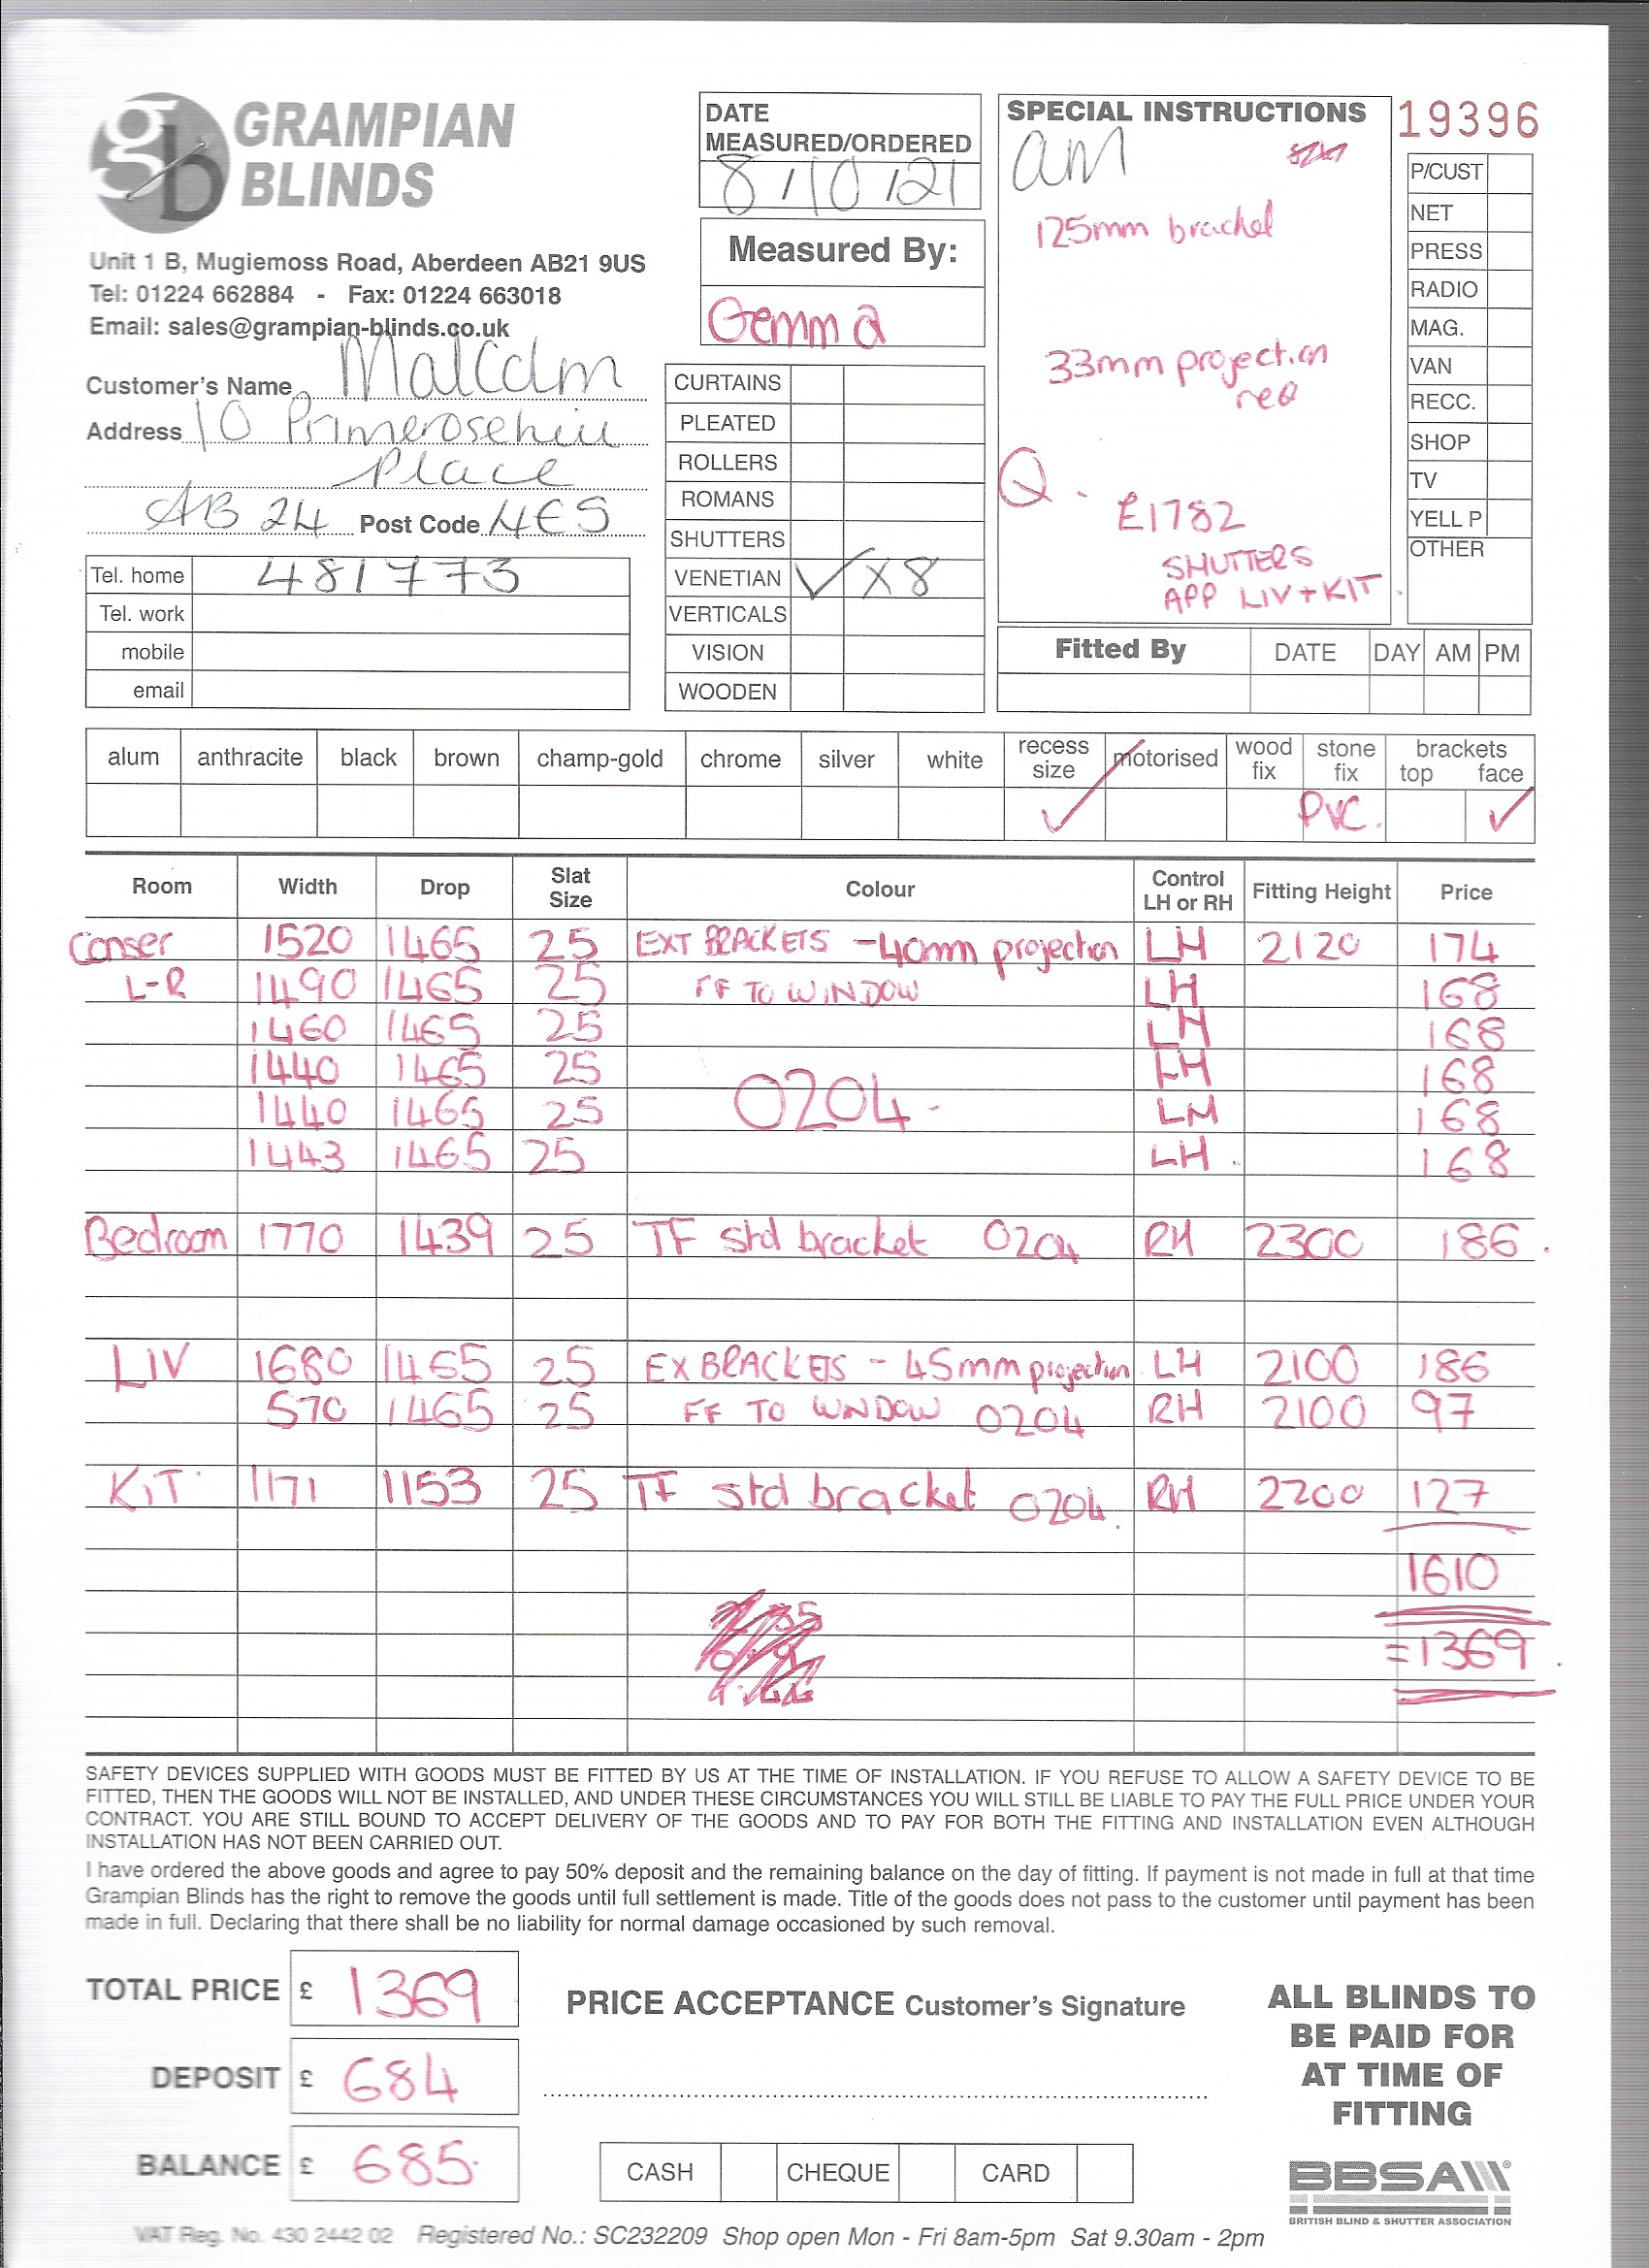 GRAMPIAN
BLINDS
Unit 1 B, Mugiemoss Road, Aberdeen AB21 9US
Tel: 01224 662884 - Fax: 01224 663018
Email: sales@grampian-blinds.co.uk
Customer's Name Malcolm
Address 10 Primerosehill
Place
AB 24 Post Code 4ES
Tel. home 481773
Tel. work
mobile
email
DATE
MEASURED/ORDERED
8/10/21
Measured By:
Gemma
CURTAINS
PLEATED
ROLLERS
ROMANS
SHUTTERS
VENETIAN ✓ X8
VERTICALS
VISION
WOODEN
SPECIAL INSTRUCTIONS
am
125mm bracket
33mm projection
req
Q.
£1782
SHUTTERS
APP LIV + KIT.
19396
P/CUST
NET
PRESS
RADIO
MAG.
VAN
RECC.
SHOP
TV
YELL P
OTHER
Fitted By DATE DAY AM PM
alum anthracite black brown champ-gold chrome silver white recess size motorised wood fix stone fix brackets top face
✓ PVC. ✓
Room Width Drop Slat Size Colour Control LH or RH Fitting Height Price
Conser 1520 1465 25 EXT BRACKETS - 40mm projection LH 2120 174
L-R 1490 1465 25 FF TO WINDOW LH 168
1460 1465 25 LH 168
1440 1465 25 LH 168
1440 1465 25 0204. LH 168
1443 1465 25 LH. 168
Bedroom 1770 1439 25 TF std bracket 0204 RH 2300 186.
LIV 1680 1465 25 EX BRACKETS - 45mm projection LH 2100 186
570 1465 25 FF TO WINDOW 0204 RH 2100 97
KIT 1171 1153 25 TF std bracket 0204. RH 2200 127
1610
=1369.
SAFETY DEVICES SUPPLIED WITH GOODS MUST BE FITTED BY US AT THE TIME OF INSTALLATION. IF YOU REFUSE TO ALLOW A SAFETY DEVICE TO BE
FITTED, THEN THE GOODS WILL NOT BE INSTALLED, AND UNDER THESE CIRCUMSTANCES YOU WILL STILL BE LIABLE TO PAY THE FULL PRICE UNDER YOUR
CONTRACT. YOU ARE STILL BOUND TO ACCEPT DELIVERY OF THE GOODS AND TO PAY FOR BOTH THE FITTING AND INSTALLATION EVEN ALTHOUGH
INSTALLATION HAS NOT BEEN CARRIED OUT.
I have ordered the above goods and agree to pay 50% deposit and the remaining balance on the day of fitting. If payment is not made in full at that time
Grampian Blinds has the right to remove the goods until full settlement is made. Title of the goods does not pass to the customer until payment has been
made in full. Declaring that there shall be no liability for normal damage occasioned by such removal.
TOTAL PRICE £ 1369
DEPOSIT £ 684
BALANCE £ 685.
PRICE ACCEPTANCE Customer's Signature
CASH CHEQUE CARD
ALL BLINDS TO
BE PAID FOR
AT TIME OF
FITTING
BBSA
BRITISH BLIND & SHUTTER ASSOCIATION
VAT Reg. No. 430 2442 02 Registered No.: SC232209 Shop open Mon - Fri 8am-5pm Sat 9.30am - 2pm